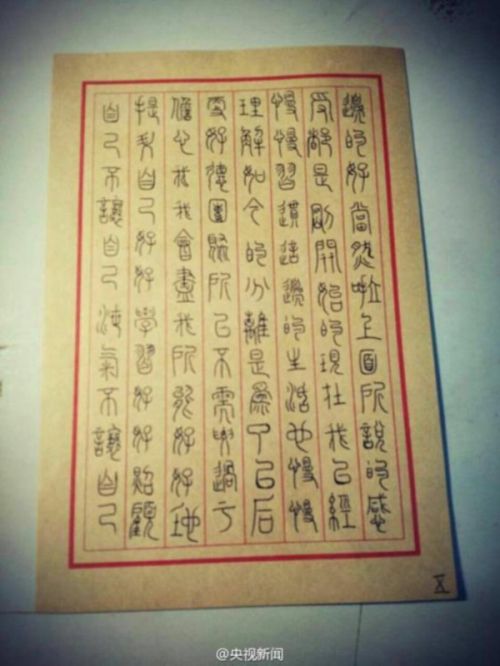 邊的好當然啦上面所說的感
受都是剛開始的現在我已經
慢慢習慣這邊的生活也慢慢
理解如今的分離是為了以后
更好德團聚所以不需要過于
擔心我我會盡我所能好好地
自己好好學習好好照顧
自己不讓自己氣不讓自己
X
@央视新闻